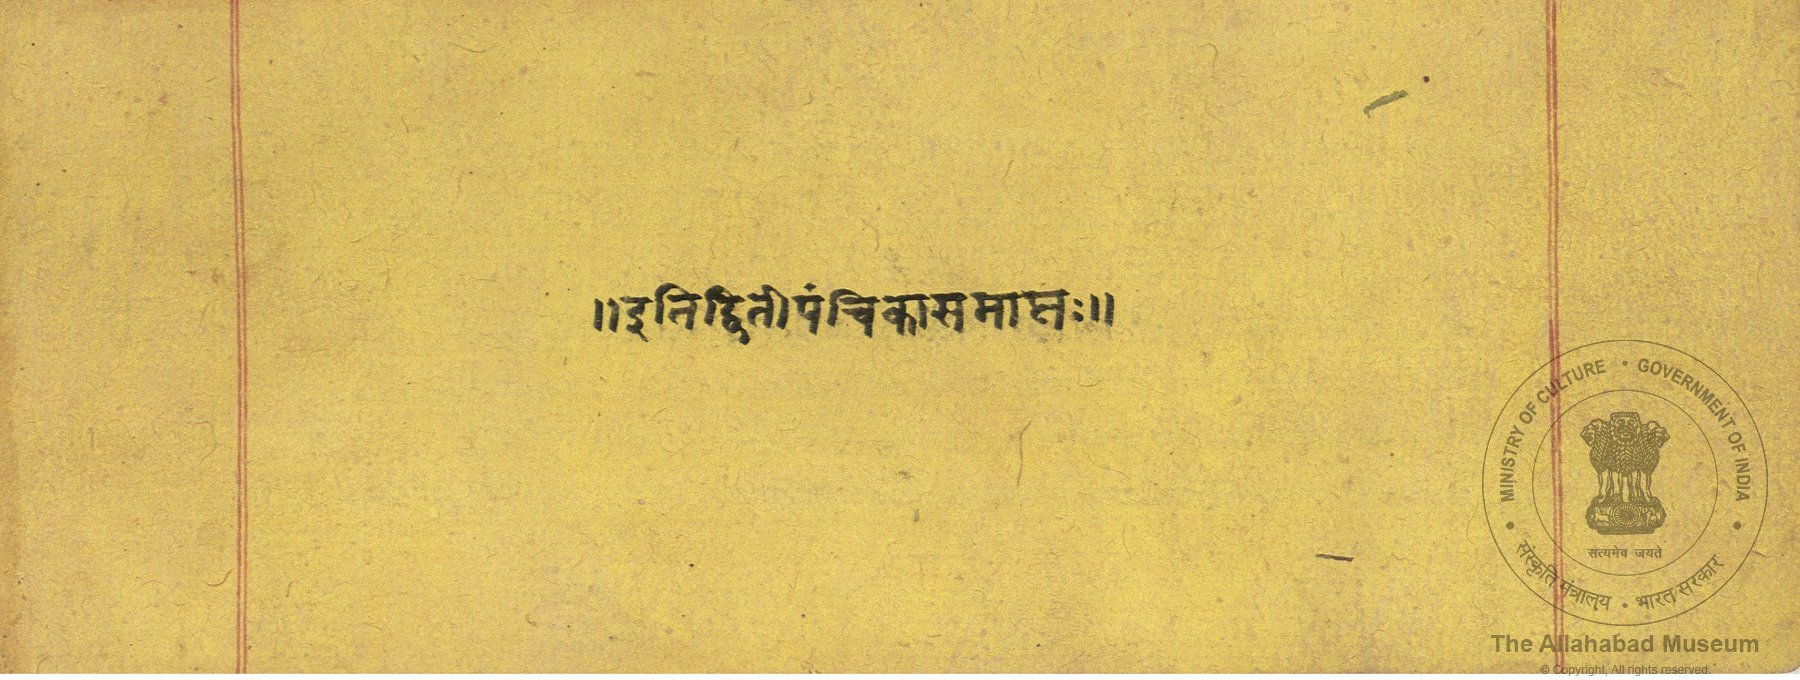 ॥इतिद्वितीपंचिकासमाप्तः॥
MINISTRY OF CULTURE • GOVERNMENT OF INDIA
सत्यमेव जयते
संस्कृति मंत्रालय • भारत सरकार
The Allahabad Museum
© Copyright, All rights reserved.